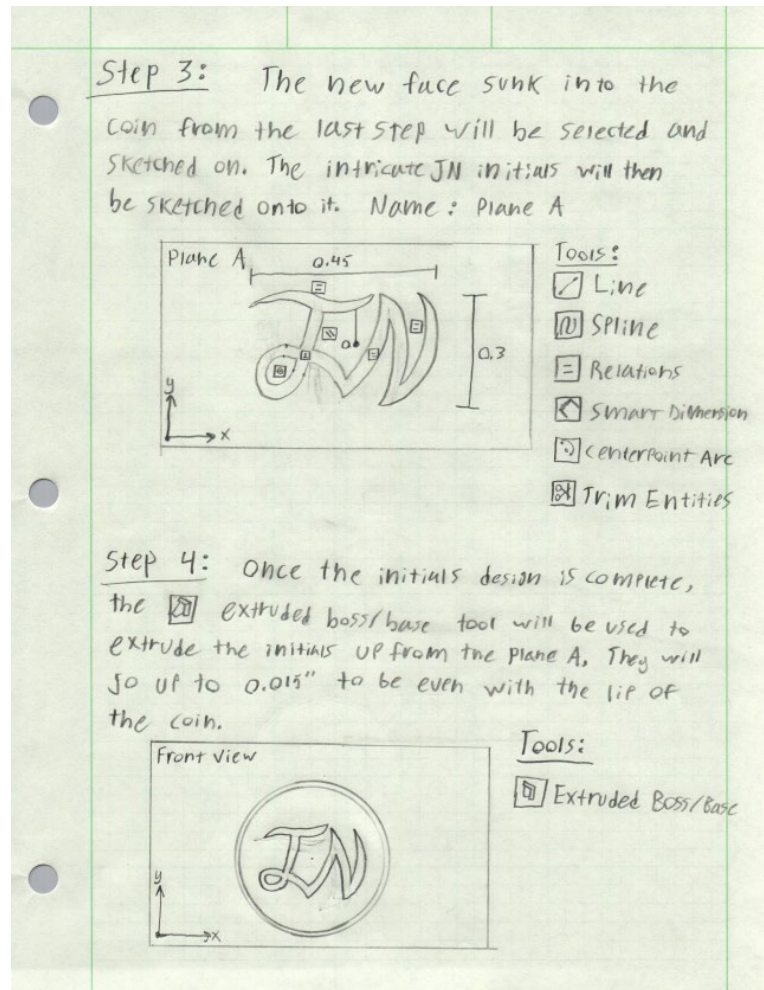 Step 3: The new face sunk into the
coin from the last step will be selected and
sketched on. The intricate JN initials will then
be sketched onto it. Name: Plane A
Plane A
0.45
0.3
y
x
Tools:
Line
Spline
Relations
Smart Dimension
Centerpoint Arc
Trim Entities
Step 4: Once the initials design is complete,
the extruded boss/base tool will be used to
extrude the initials up from the plane A. They will
go up to 0.015" to be even with the lip of
the coin.
Front View
JN
y
x
Tools:
Extruded Boss/Base